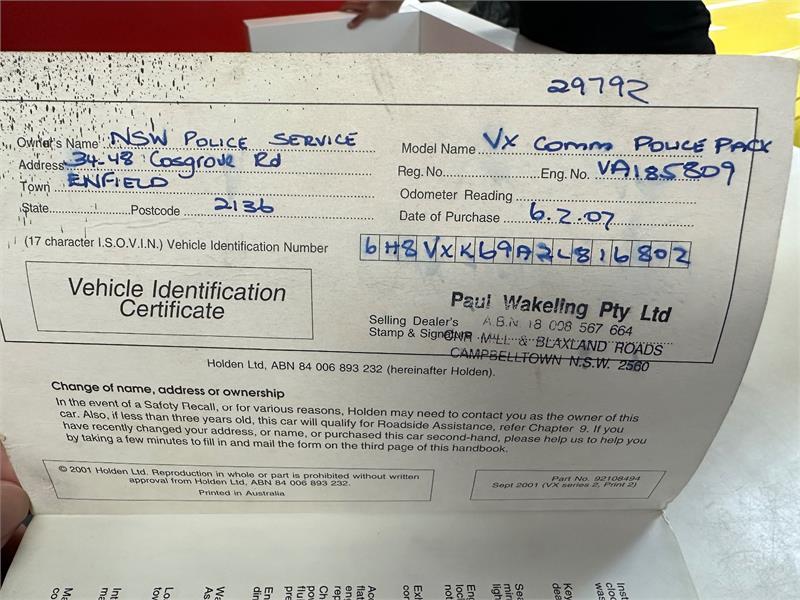 29792
Owner's Name NSW POLICE SERVICE
Address 34-48 Cosgrove Rd
Town ENFIELD
State Postcode 2136
Model Name VX Comm POLICE PACK
Reg. No. Eng. No. VA185809
Odometer Reading
Date of Purchase 6.2.02
(17 character I.S.O.V.I.N.) Vehicle Identification Number 6H8VXK69A2L816802
Vehicle Identification
Certificate
Selling Dealer's
Stamp & Signature
Paul Wakeling Pty Ltd
A.B.N 18 008 567 664
CNR MILL & BLAXLAND ROADS
CAMPBELLTOWN N.S.W. 2560
Holden Ltd, ABN 84 006 893 232 (hereinafter Holden).
Change of name, address or ownership
In the event of a Safety Recall, or for various reasons, Holden may need to contact you as the owner of this
car. Also, if less than three years old, this car will qualify for Roadside Assistance, refer Chapter 9. If you
have recently changed your address, or name, or purchased this car second-hand, please help us to help you
by taking a few minutes to fill in and mail the form on the third page of this handbook.
© 2001 Holden Ltd. Reproduction in whole or part is prohibited without written
approval from Holden Ltd, ABN 84 006 893 232.
Printed in Australia
Part No. 92108494
Sept 2001 (VX series 2, Print 2)